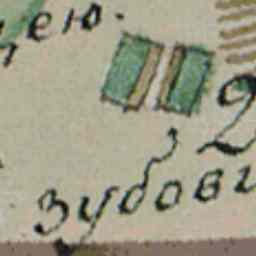 цею.
2
зубови